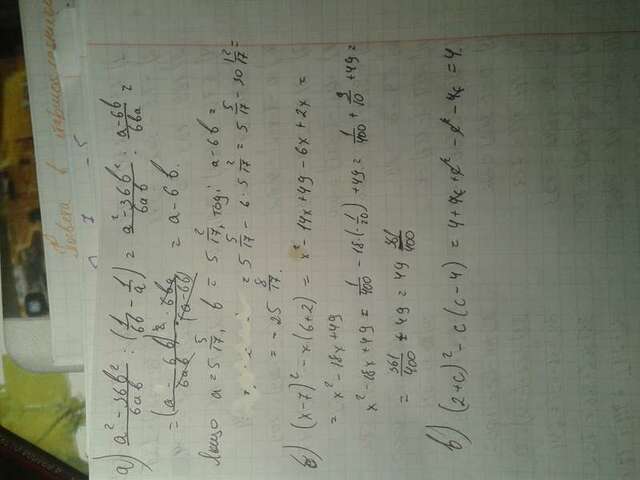 а) (a² - 36b²)/(6ab) : (1/(6b) - 1/a) = (a² - 36b²)/(6ab) : (a-6b)/(6ba) =
= ((a - 6b)² · 6ba)/(6ab · (a-6b)) = a - 6b.
Якщо a = 5 5/17, b = 5 2/17, тоді a - 6b =
= 5 5/17 - 6 · 5 2/17 = 5 5/17 - 30 12/17 =
= - 25 8/17.
б) (x-7)² - x(6+2) = x² - 14x + 49 - 6x + 2x =
= x² - 18x + 49
x² - 18x + 49 = 1/400 - 18·(-1/20) + 49 = 1/400 + 9/10 + 49 =
= 361/400 + 49 = 49 361/400
в) (2+c)² - c(c-4) = 4 + 4c + c² - c² - 4c = 4.